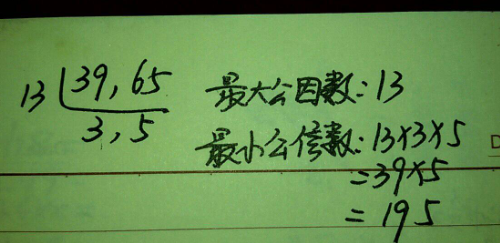 13 39,65
3,5
最大公因数:13
最小公倍数:13×3×5
=39×5
=195